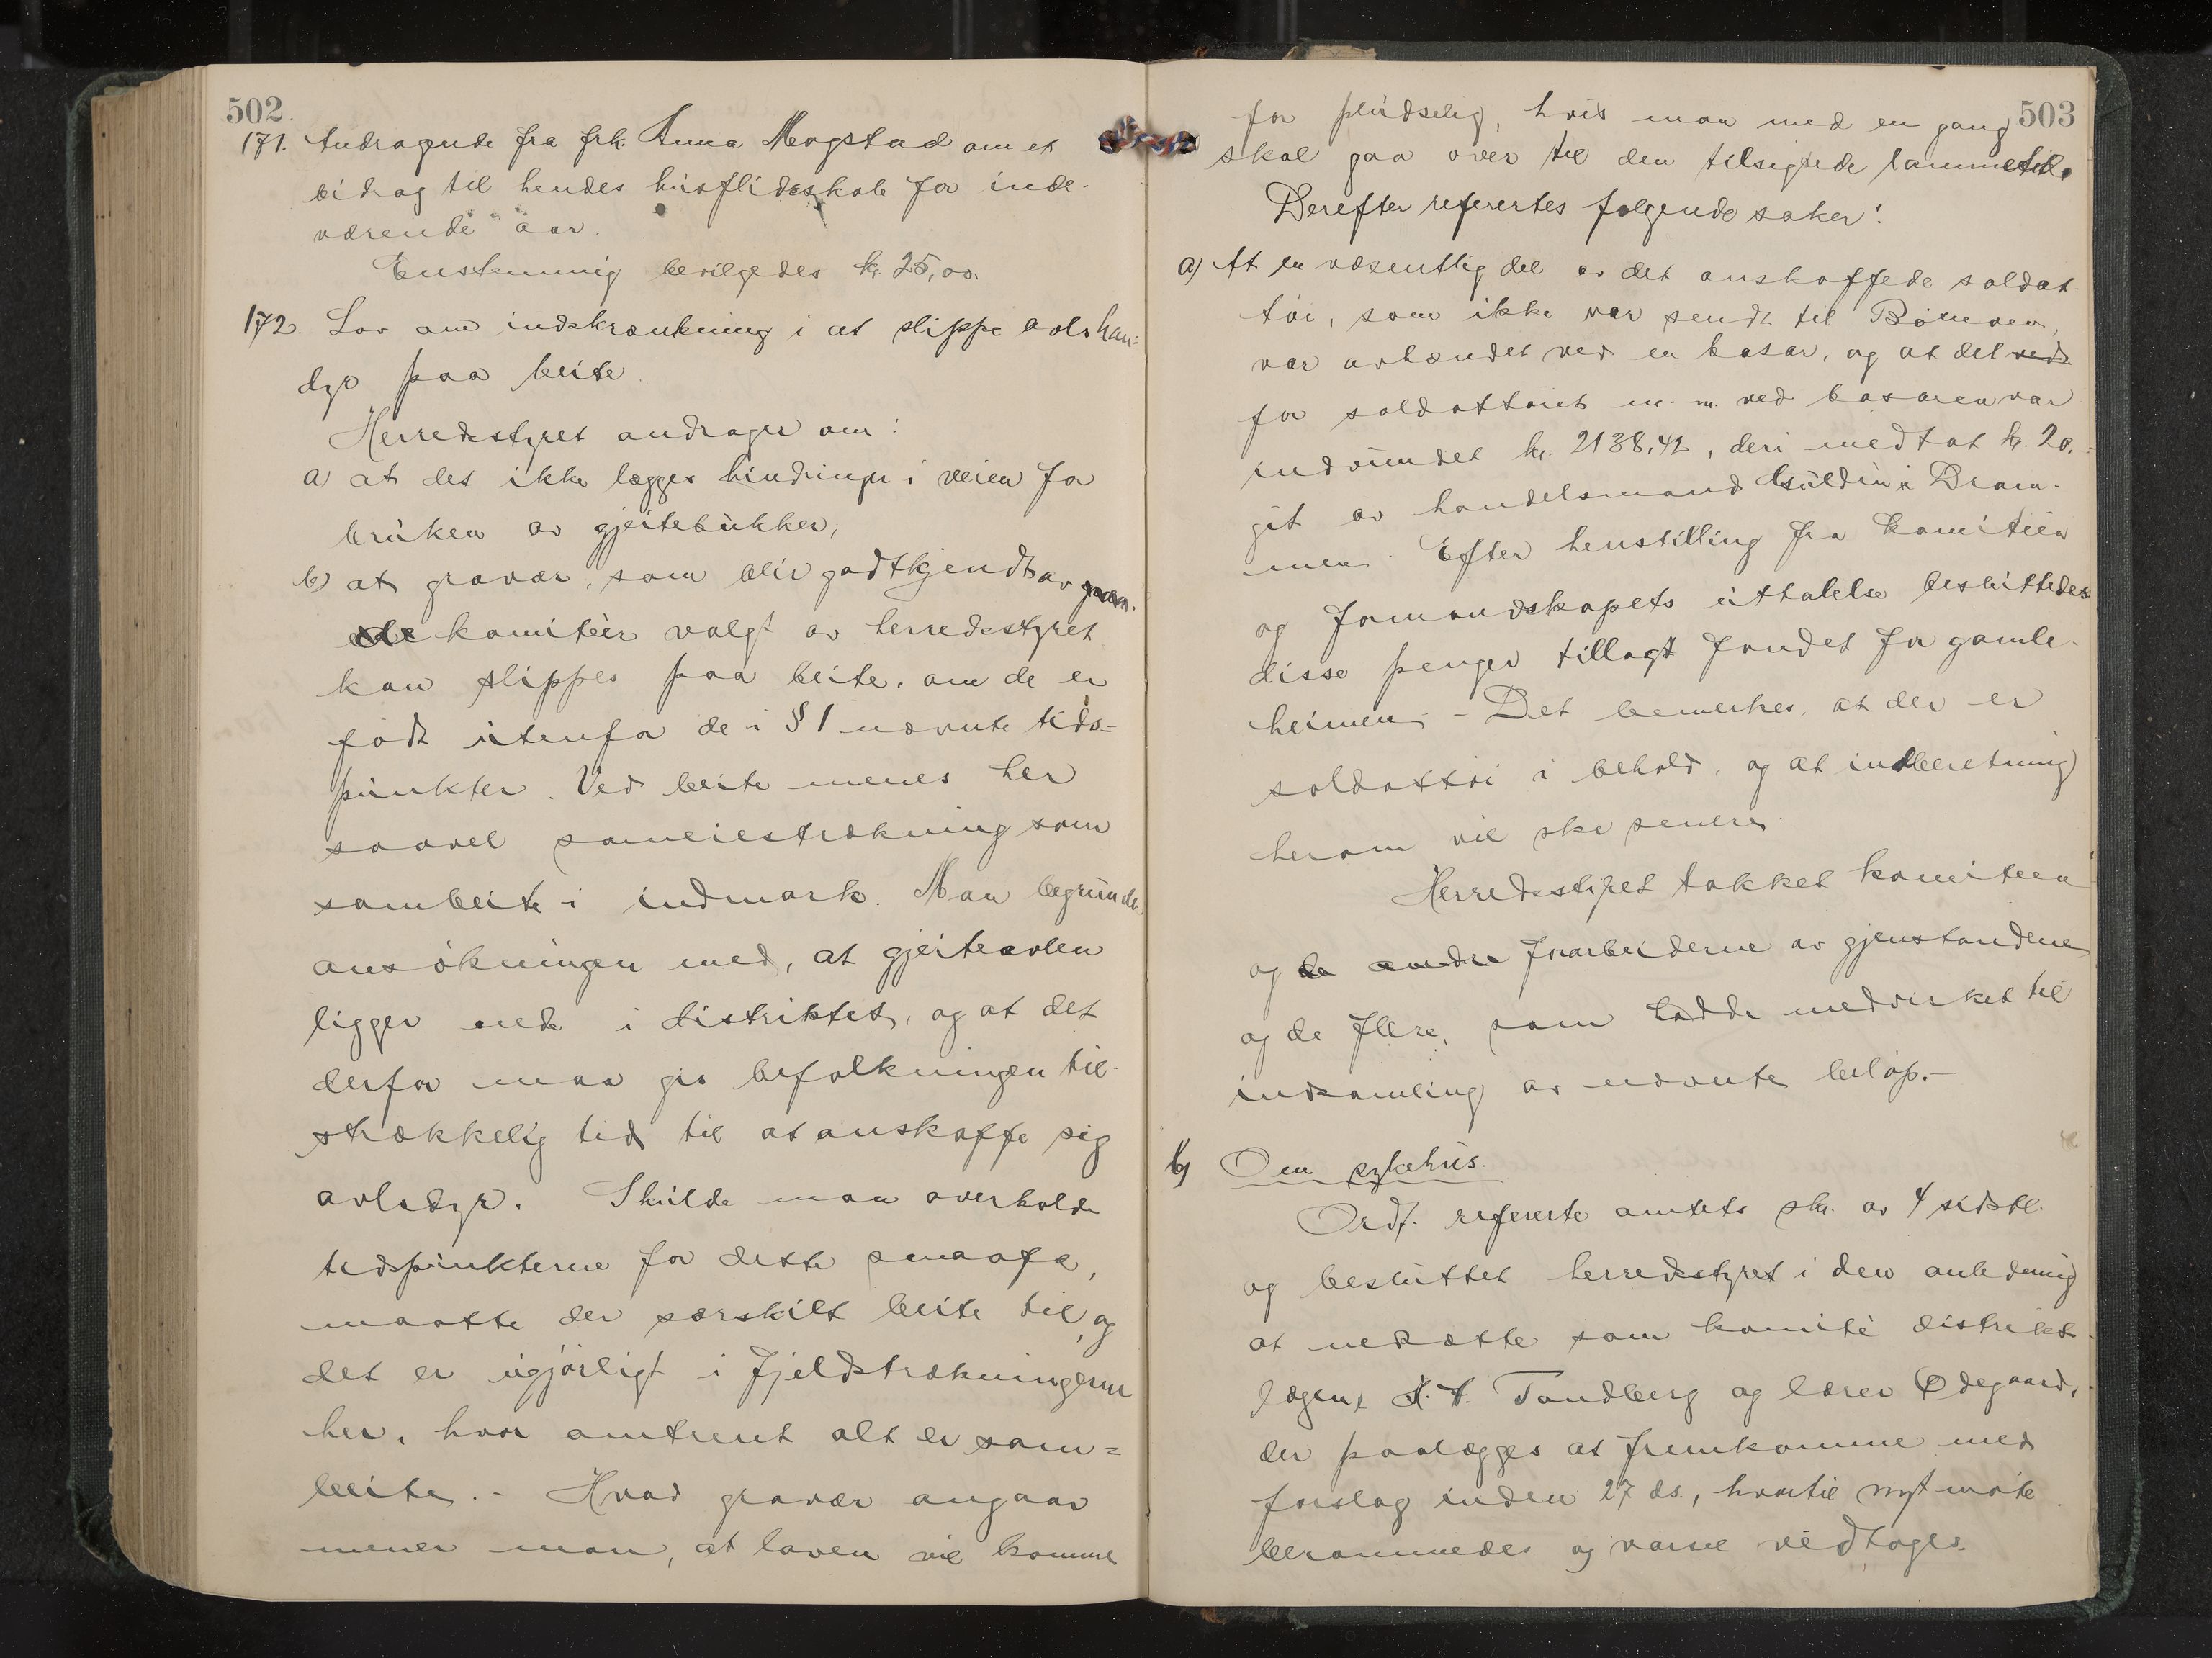 502.
171. Andragende fra frk. Anna Mogstad om et
bidrag til hendes husflidsskole for inde-
værende aar.
Enstemmig bevilgedes kr. 25,00.
172. Lov om indskrænkning i at slippe avlshan-
dyr paa beite.
Herredsstyret andrager om:
a) at det ikke lægges hindringer i veien for
bruken av gjeitebukker,
b) at gravær, som blir godtkjendt av
komitéer valgt av herredsstyret
kan slippes paa beite, om de er
født utenfor de i § 1 nævnte tids-
punkter. Ved beite menes her
saavel sameiestrækning som
sambeite i indmark. Man begrunder
ansøkningen med, at gjeiteavlen
ligger nede i distriktet, og at det
derfor maa gis befolkningen til-
strækkelig tid til at anskaffe sig
avlsdyr. Skulde man overholde
tidspunkterne for dette smaafæ,
maatte der særskilt beite til, og
det er ugjørligt i fjeldstrækningerne
her, hvor omtrent alt er sam-
beite. - Hvad gravær angaar
mener man, at loven vil komme
503
for pludselig, hvis man med en gang
skal gaa over til den tilsigtede lammetid.
Derefter refertes følgende saker:
a) At en væsentlig del av det anskaffede soldat-
tøi, som ikke var sendt til
var avhændet ved en basar, og at det ved
for soldattøiet m. m. ved basaren var
indvundet kr. 2138,42, deri medtat kr. 20,-
git av handelsmand i Dram-
men. Efter henstilling fra komitéen
og formandskapets uttalelse besluttedes
disse penger tillagt fondet for gamle-
heimen. - Det bemerkes, at der er
soldattøi i behold, og at indberetning
herom vil ske senere.
Herredsstyret takket komiteen
og de andre forarbeiderne av gjenstandene
og de flere, som hadde medvirket til
indsamling av nævnte beløp.-
b) Om sykehus.
Ordf. refererte amtets skr. av 4 sidstl.
og besluttet herredsstyret i den anledning
at nedsætte som komité distrikts-
lægen, Tandberg og lærer Ødegaard,
der paalægges at fremkomme med
forslag inden 27 ds., hvortil nyt møte
berammedes og varsel vedtoges.